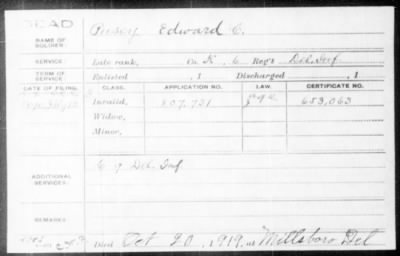 DEAD
NAME OF SOLDIER: Edward C.
SERVICE: Late rank, Co. K, 6 Reg't Del. Inf
TERM OF SERVICE: Enlisted , 1 Discharged , 1
DATE OF FILING. CLASS. APPLICATION NO. LAW. CERTIFICATE NO.
Invalid, 807,721 653,063
Widow,
Minor,
ADDITIONAL SERVICES: Del. Inf
REMARKS:
Died Oct 20, 1919, at Millsboro Del